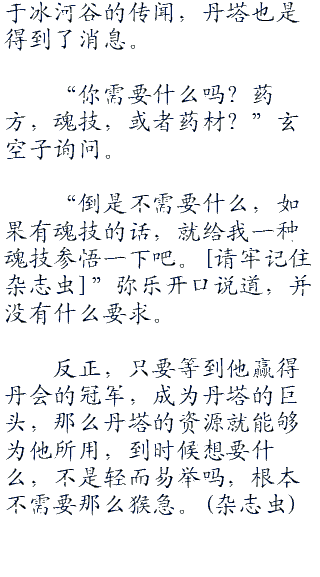 于冰河谷的传闻，丹塔也是
得到了消息。
“你需要什么吗？药
方，魂技，或者药材？”玄
空子询问。
“倒是不需要什么，如
果有魂技的话，就给我一种
魂技参悟一下吧。[请牢记住
杂志虫]”弥乐开口说道，并
没有什么要求。
反正，只要等到他赢得
丹会的冠军，成为丹塔的巨
头，那么丹塔的资源就能够
为他所用，到时候想要什
么，不是轻而易举吗，根本
不需要那么猴急。(杂志虫)